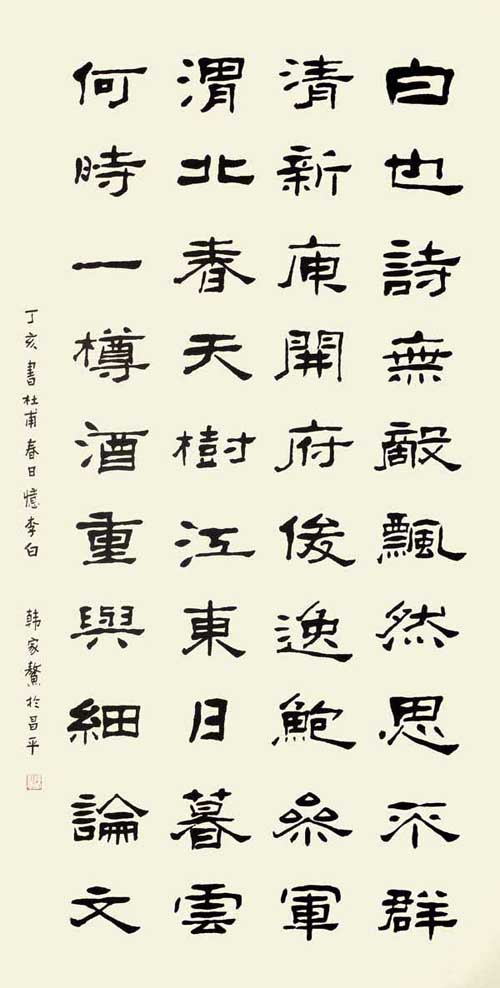 白也詩無敵飄然思不群
清新庾開府俊逸鮑參軍
渭北春天樹江東日暮雲
何時一樽酒重與細論文
丁亥書杜甫春日憶李白 韩家鰲於昌平